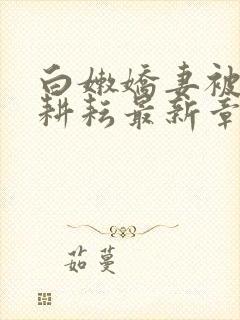 白嫩嬌妻被
耕耘最新章
茹蔓